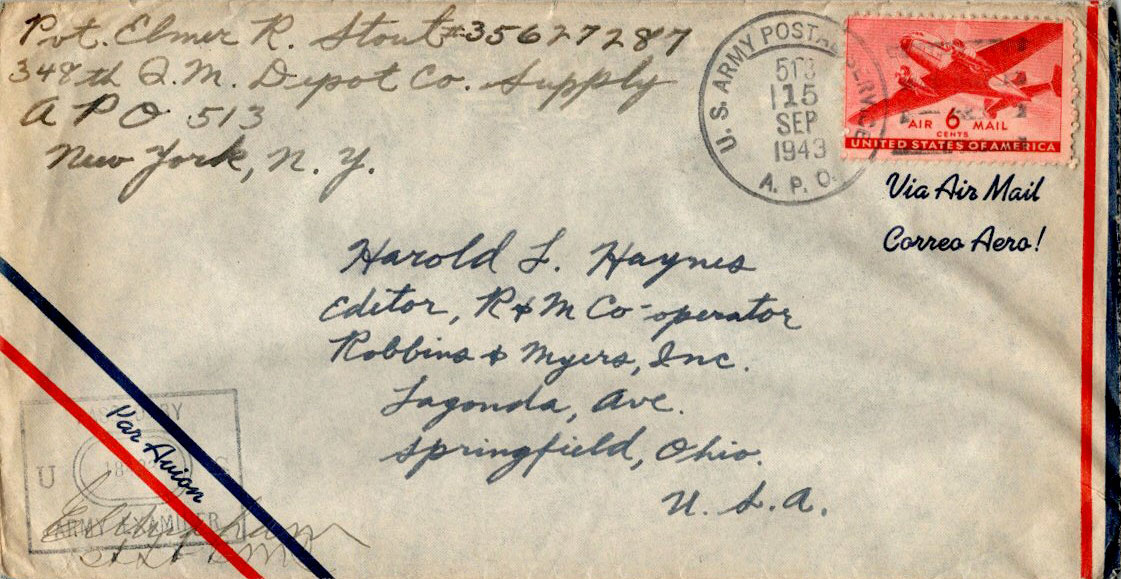 Pvt. Elmer R. Stout #35627287
348th Q.M. Depot Co. Supply
A P O 513
New York, N. Y.
U.S. ARMY POSTAL SERVICE
513
15
SEP
1943
A. P. O.
AIR 6 MAIL
CENTS
UNITED STATES OF AMERICA
Via Air Mail
Correo Aero!
Harold L. Haynes
Editor, R & M Co-operator
Robbins & Myers, Inc.
Lagonda, Ave.
Springfield, Ohio.
U. S. A.
Par Avion
U S
ARMY EXAMINER